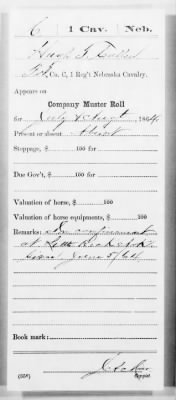 C | 1 Cav. | Neb.
Hugh
Pvt, Co. C, 1 Reg't Nebraska Cavalry.
Appears on
Company Muster Roll
for July & Augt, 1864.
Present or absent Absent
Stoppage, $ 100 for
Due Gov't, $ 100 for
Valuation of horse, $ 100
Valuation of horse equipments, $ 100
Remarks: In confinement
at Little Rock Ark.
since June 5/64.
Book mark:
(358) Copyist.